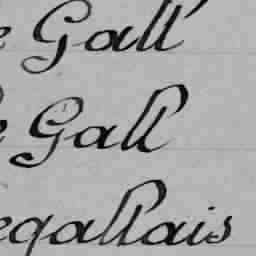 e Gall
e Gall
egallais